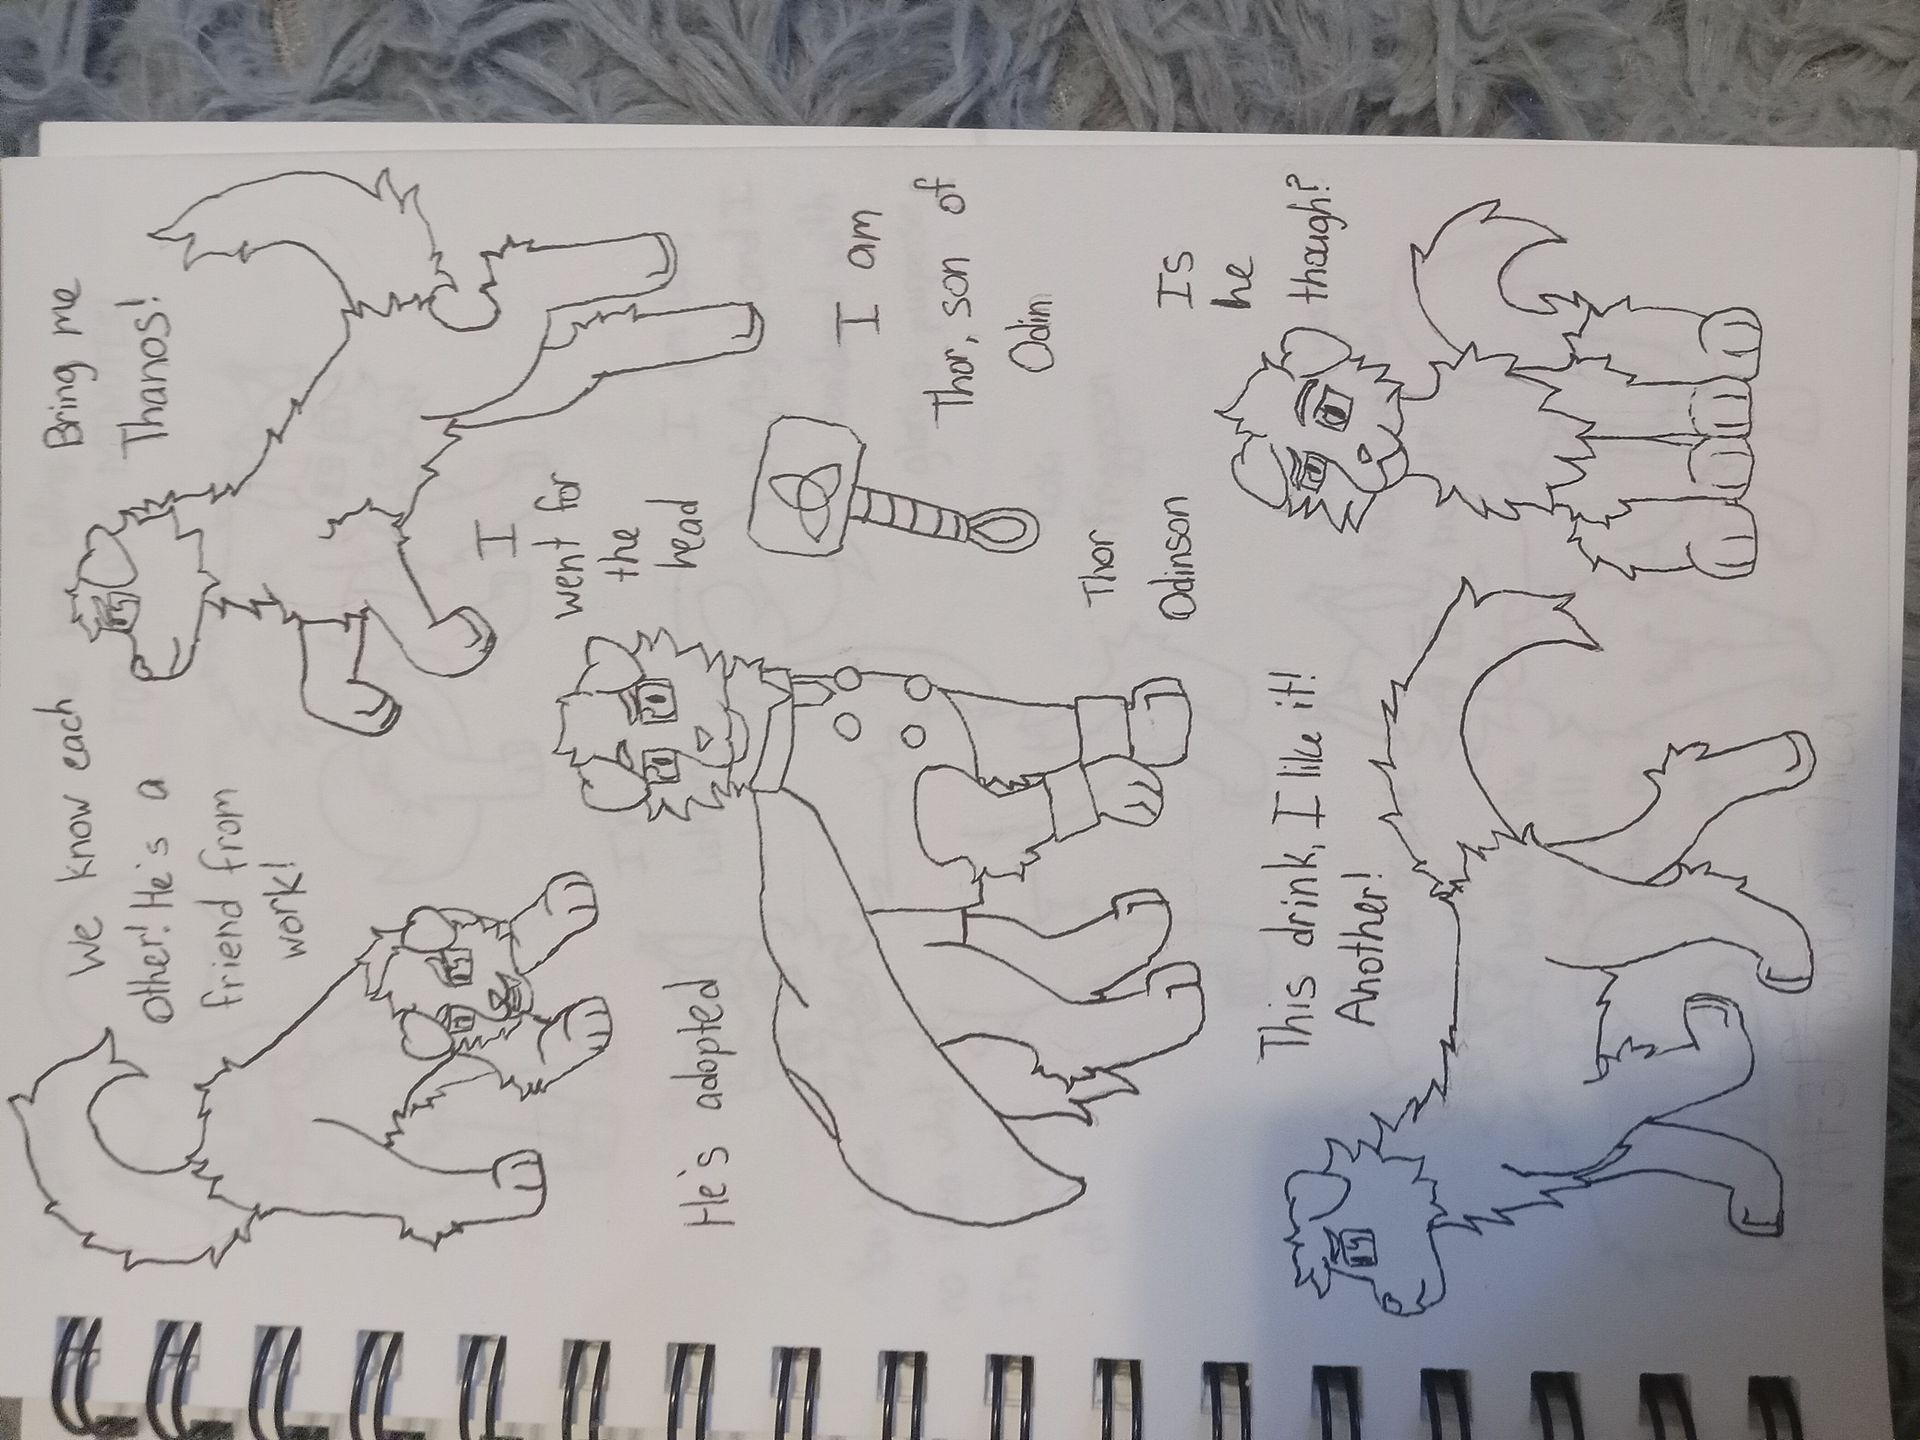 We know each
other! He's a
friend from
work!
Bring me
Thanos!
I
went for
the
head
He's adopted
I am
Thor, son of
Odin
Thor
Odinson
This drink, I like it!
Another!
Is
he
though?